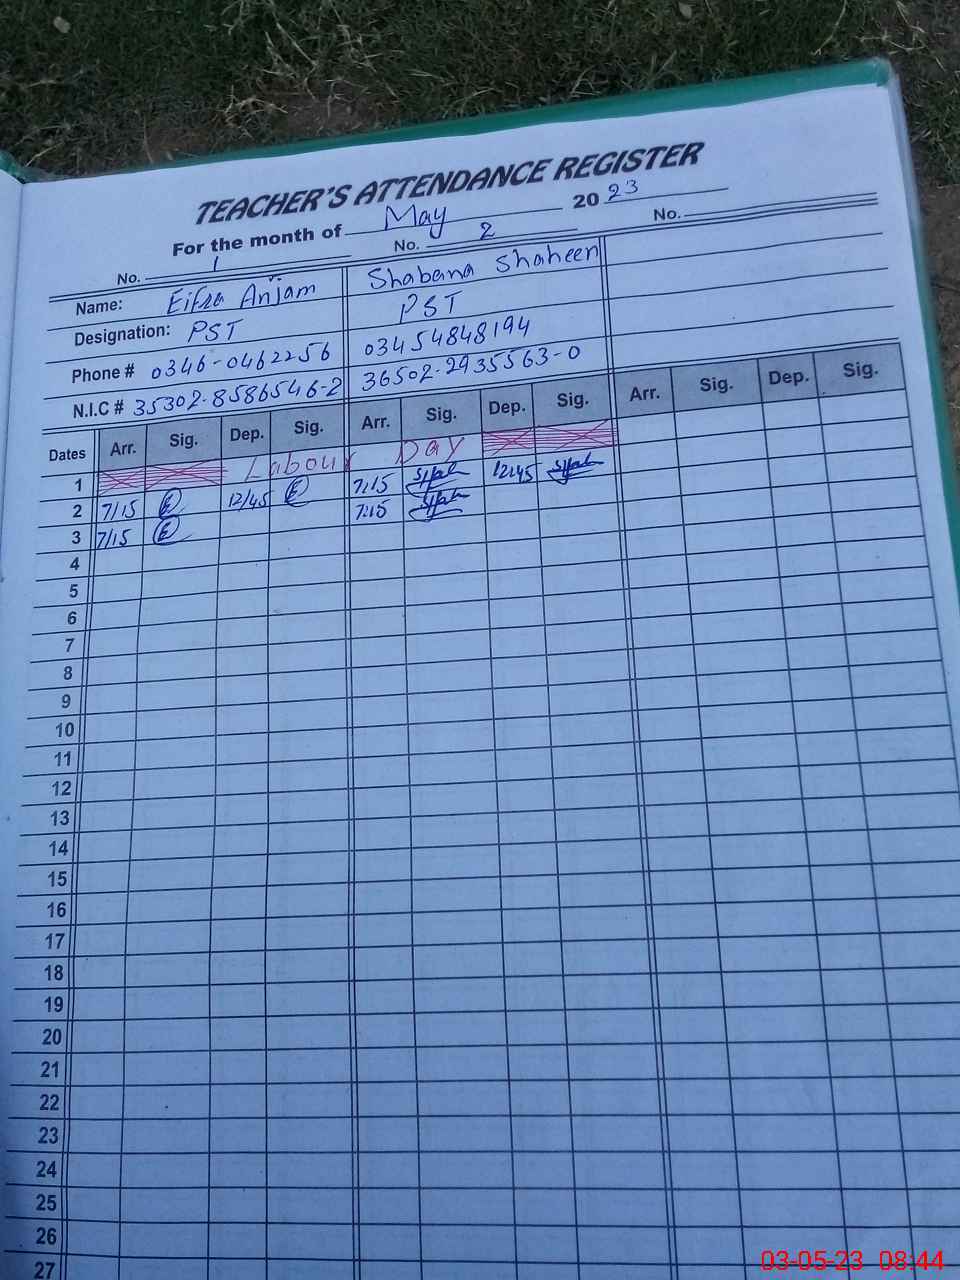 TEACHER'S ATTENDANCE REGISTER
For the month of May 2023
No. 1 No. 2 No.
Name: Eifza Anjam Shabana Shaheen
Designation: PST PST
Phone # 0346-0462256 03454848194
N.I.C # 35302-8586546-2 36502-2935563-0
Dates Arr. Sig. Dep. Sig. Arr. Sig. Dep. Sig. Arr. Sig. Dep. Sig.
1 Labour Day
2 7/15 E 12/45 E 7:15 12:45
3 7/15 E 7:15
4
5
6
7
8
9
10
11
12
13
14
15
16
17
18
19
20
21
22
23
24
25
26
27
03-05-23 08:44